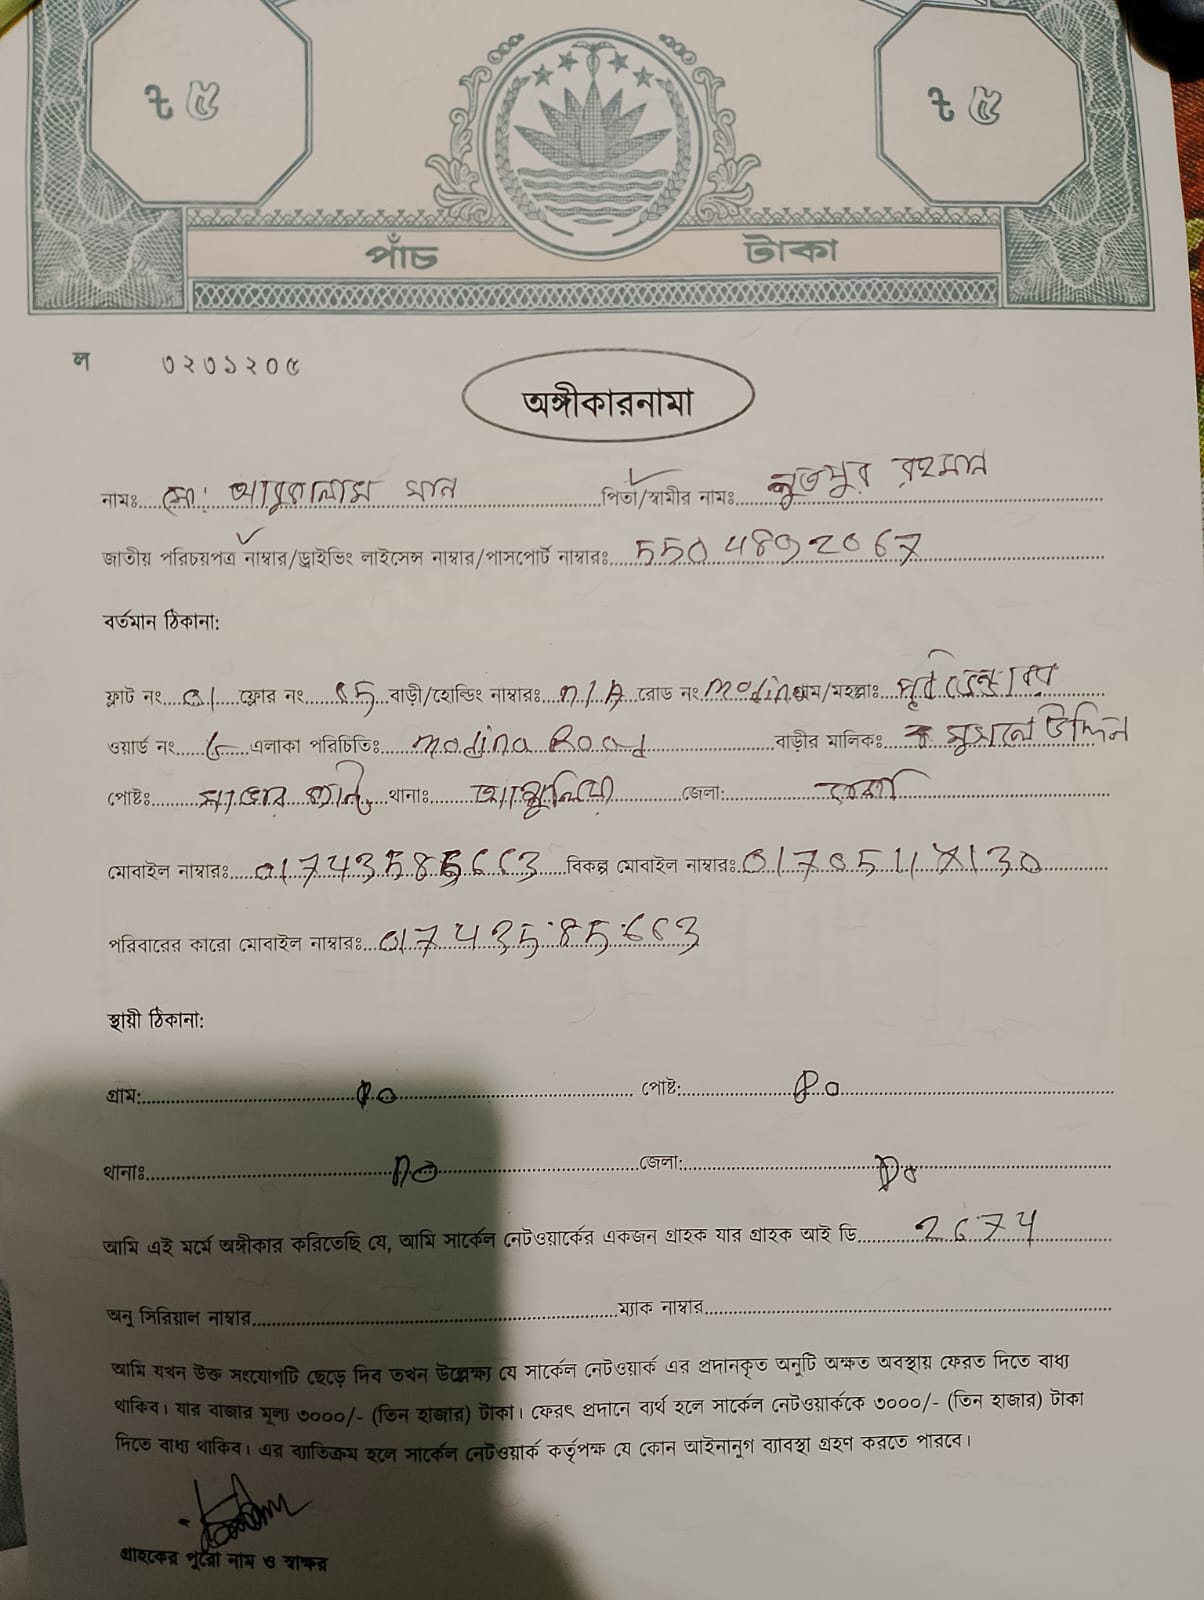 ৳ ৫ ৳ ৫
পাঁচ টাকা
ল ৩২৩১২০৫
অঙ্গীকারনামা
নামঃ মো: আবুল কালাম খান পিতা/স্বামীর নামঃ লুতফুর রহমান
জাতীয় পরিচয়পত্র নাম্বার/ড্রাইভিং লাইসেন্স নাম্বার/পাসপোর্ট নাম্বারঃ 5504892067
বর্তমান ঠিকানা:
ফ্লাট নং 01 ফ্লোর নং 05 বাড়ী/হোল্ডিং নাম্বারঃ N/A রোড নং Modina গ্রাম/মহল্লাঃ পূর্ব
ওয়ার্ড নং এলাকা পরিচিতিঃ Modina Road বাড়ীর মালিকঃ উদ্দিন
পোষ্টঃ থানাঃ আশুলিয়া জেলা: ঢাকা
মোবাইল নাম্বারঃ 01743585663 বিকল্প মোবাইল নাম্বারঃ
পরিবারের কারো মোবাইল নাম্বারঃ 01743585663
স্থায়ী ঠিকানা:
গ্রাম: Do পোষ্ট: Do
থানাঃ Do জেলা: Do
আমি এই মর্মে অঙ্গীকার করিতেছি যে, আমি সার্কেল নেটওয়ার্কের একজন গ্রাহক যার গ্রাহক আই ডি 2674
অনু সিরিয়াল নাম্বার ম্যাক নাম্বার
আমি যখন উক্ত সংযোগটি ছেড়ে দিব তখন উল্লেক্ষ্য যে সার্কেল নেটওয়ার্ক এর প্রদানকৃত অনুটি অক্ষত অবস্থায় ফেরত দিতে বাধ্য
থাকিব। যার বাজার মূল্য ৩০০০/- (তিন হাজার) টাকা। ফেরৎ প্রদানে ব্যর্থ হলে সার্কেল নেটওয়ার্ককে ৩০০০/- (তিন হাজার) টাকা
দিতে বাধ্য থাকিব। এর ব্যাতিক্রম হলে সার্কেল নেটওয়ার্ক কর্তৃপক্ষ যে কোন আইনানুগ ব্যাবস্থা গ্রহণ করতে পারবে।
গ্রাহকের পুরো নাম ও স্বাক্ষর